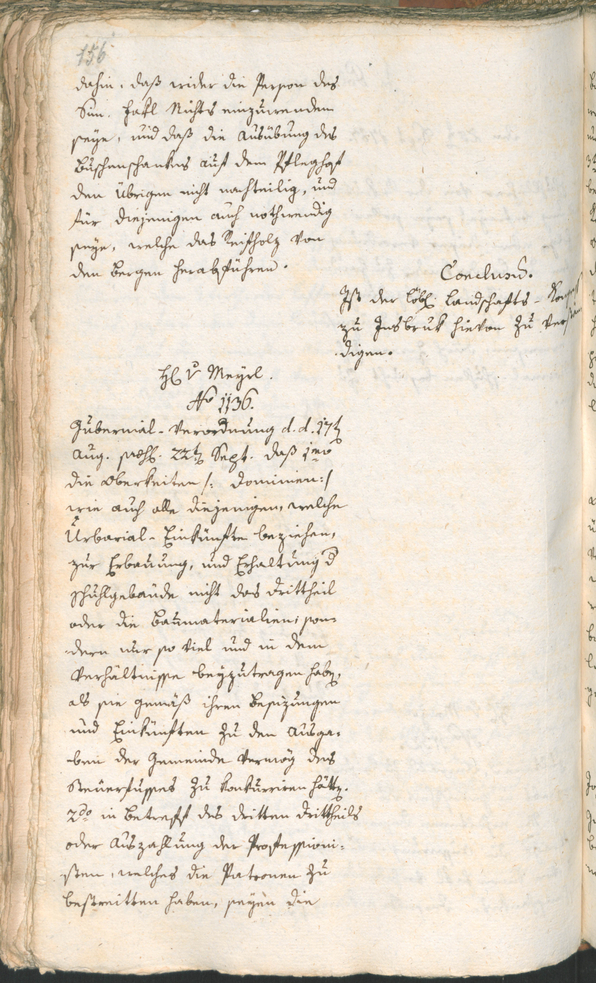 156
dahin, daß wider die Person des
Sim. Hakl Nichts einzuwenden
seye, und daß die Ausübung des
Buschenschankes auf dem Pfleghof
den übrigen nicht nachteilig, und
für diejenigen auch nothwendig
seye, welche das Reifholz von
den Bergen herabführen.
Conclusũ.
Ist der löbl: Landschafts-
zu Insbruk hievon zu ver
digen.
H v Mayrl.
No 1136.
Gubernial-Verordnung d. d. 17t
Aug. prs. 22t Sept. daß 1mo
die Oberkeiten /: Dominien :/
wie auch alle diejenigen, welche
Urbarial-Einkünfte beziehen,
zur Erbauung, und Erhaltung d
Schuhlgebäude nicht das Drittheil
oder die Baumaterialien, son-
dern nur so viel und in dem
Verhältnisse beyzutragen habe,
als sie gemäß ihren Besizungen
und Einkünften zu den Ausga-
ben der Gemeinde vermög des
Steuerfusses zu konkurriren hätte.
2do in Betreff des dritten Drittheils
oder Auszahlung der Professioni-
sten, welches die Patronen zu
bestreitten haben, seyen die